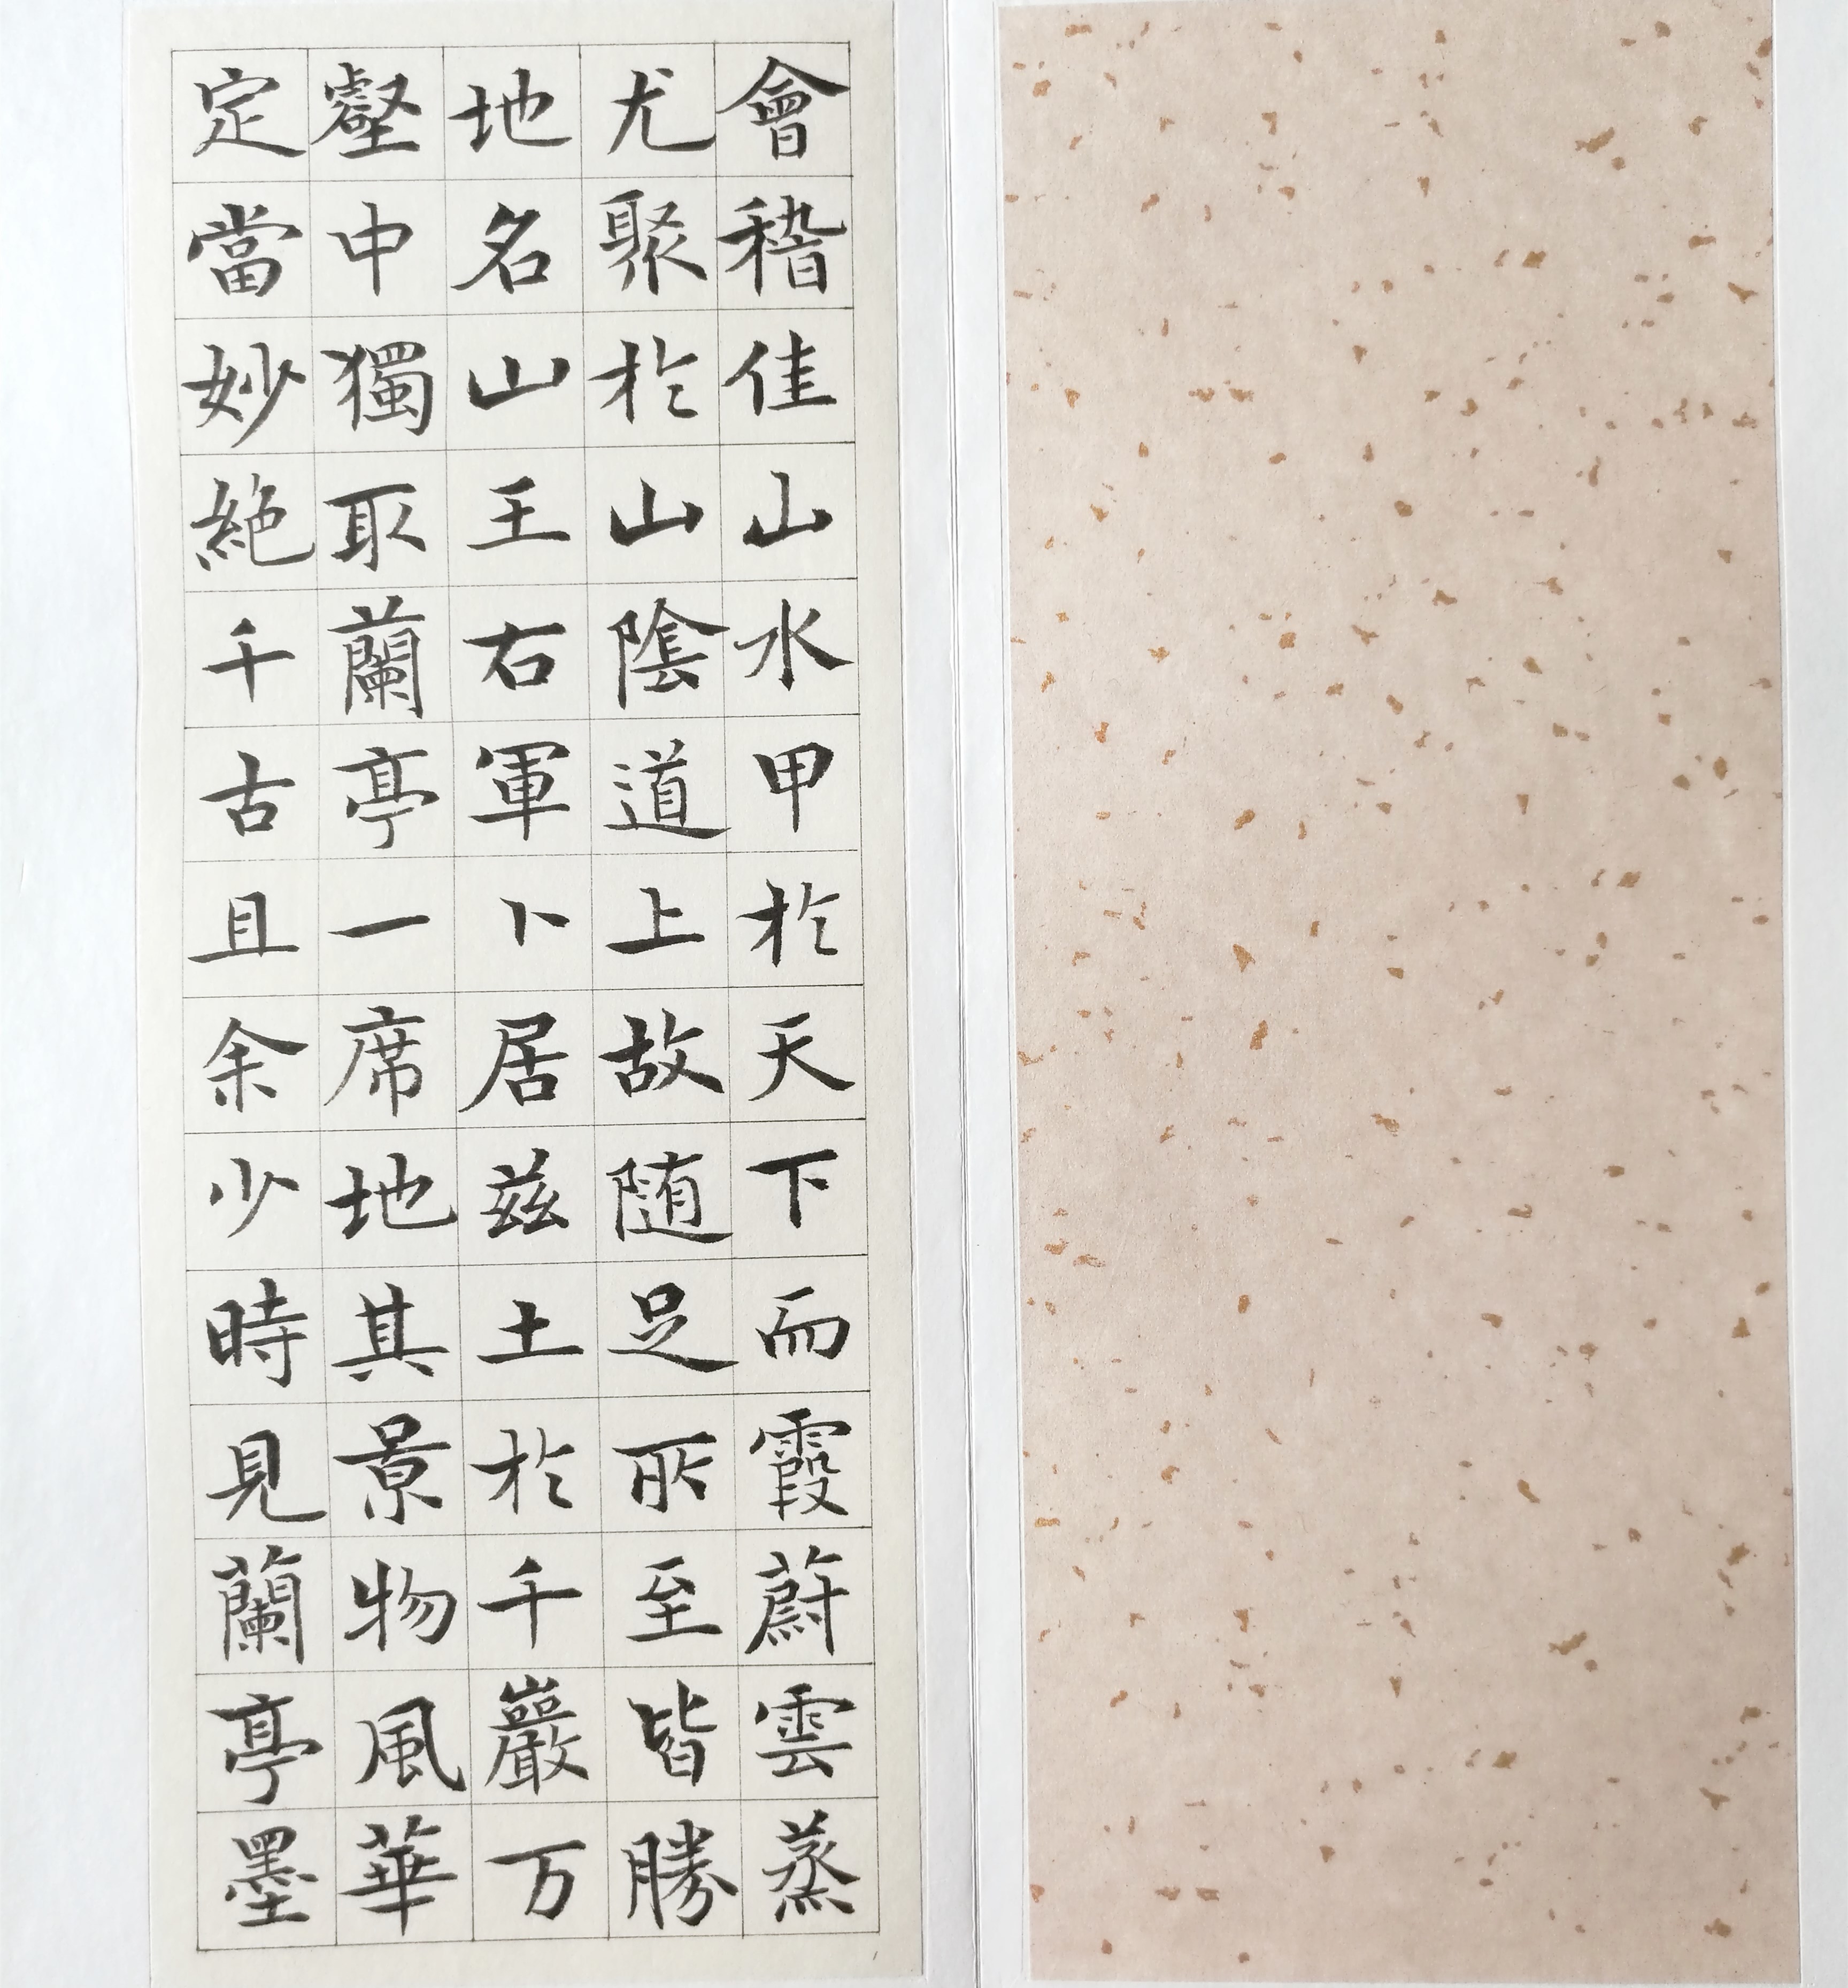 會稽佳山水甲於天下而霞蔚雲蒸
尤聚於山陰道上故随足所至皆勝
地名山王右軍卜居兹土於千巖万
壑中獨取蘭亭一席地其景物風華
定當妙絕千古且余少時見蘭亭墨